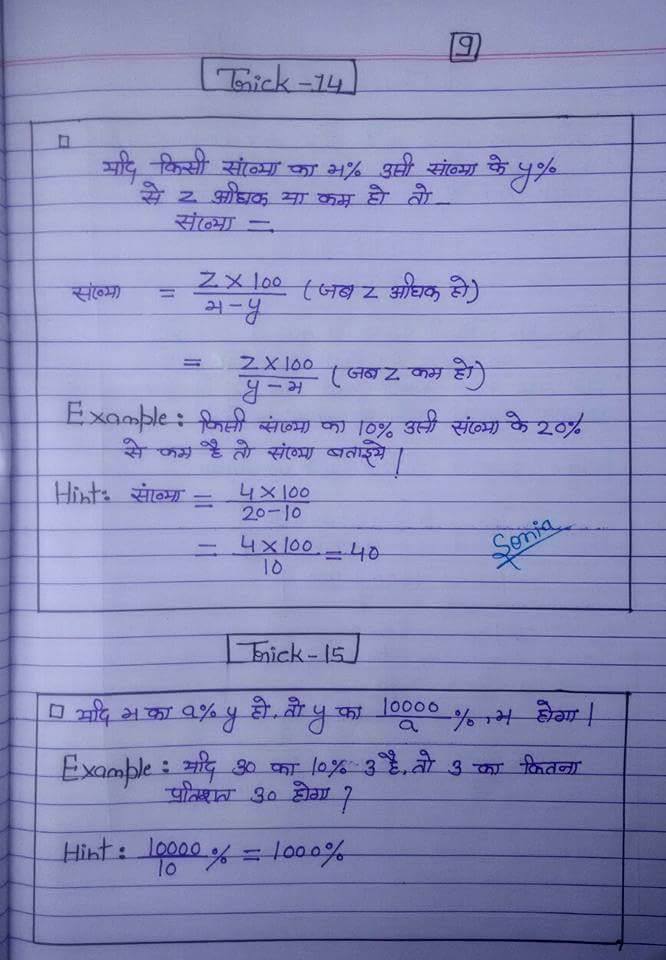 9
Trick-14
यदि किसी संख्या का x% उसी संख्या के y%
से z अधिक या कम हो तो-
संख्या =
संख्या = Z×100/x-y (जब z अधिक हो)
= Z×100/y-x (जब z कम हो)
Example: किसी संख्या का 10% उसी संख्या के 20%
से कम है तो संख्या बताइये।
Hint: संख्या = 4×100/20-10
= 4×100/10 = 40
Sonia
Trick-15
यदि x का a% y हो, तो y का 10000/a %, x होगा।
Example: यदि 30 का 10% 3 है, तो 3 का कितना
प्रतिशत 30 होगा?
Hint: 10000/10 % = 1000%